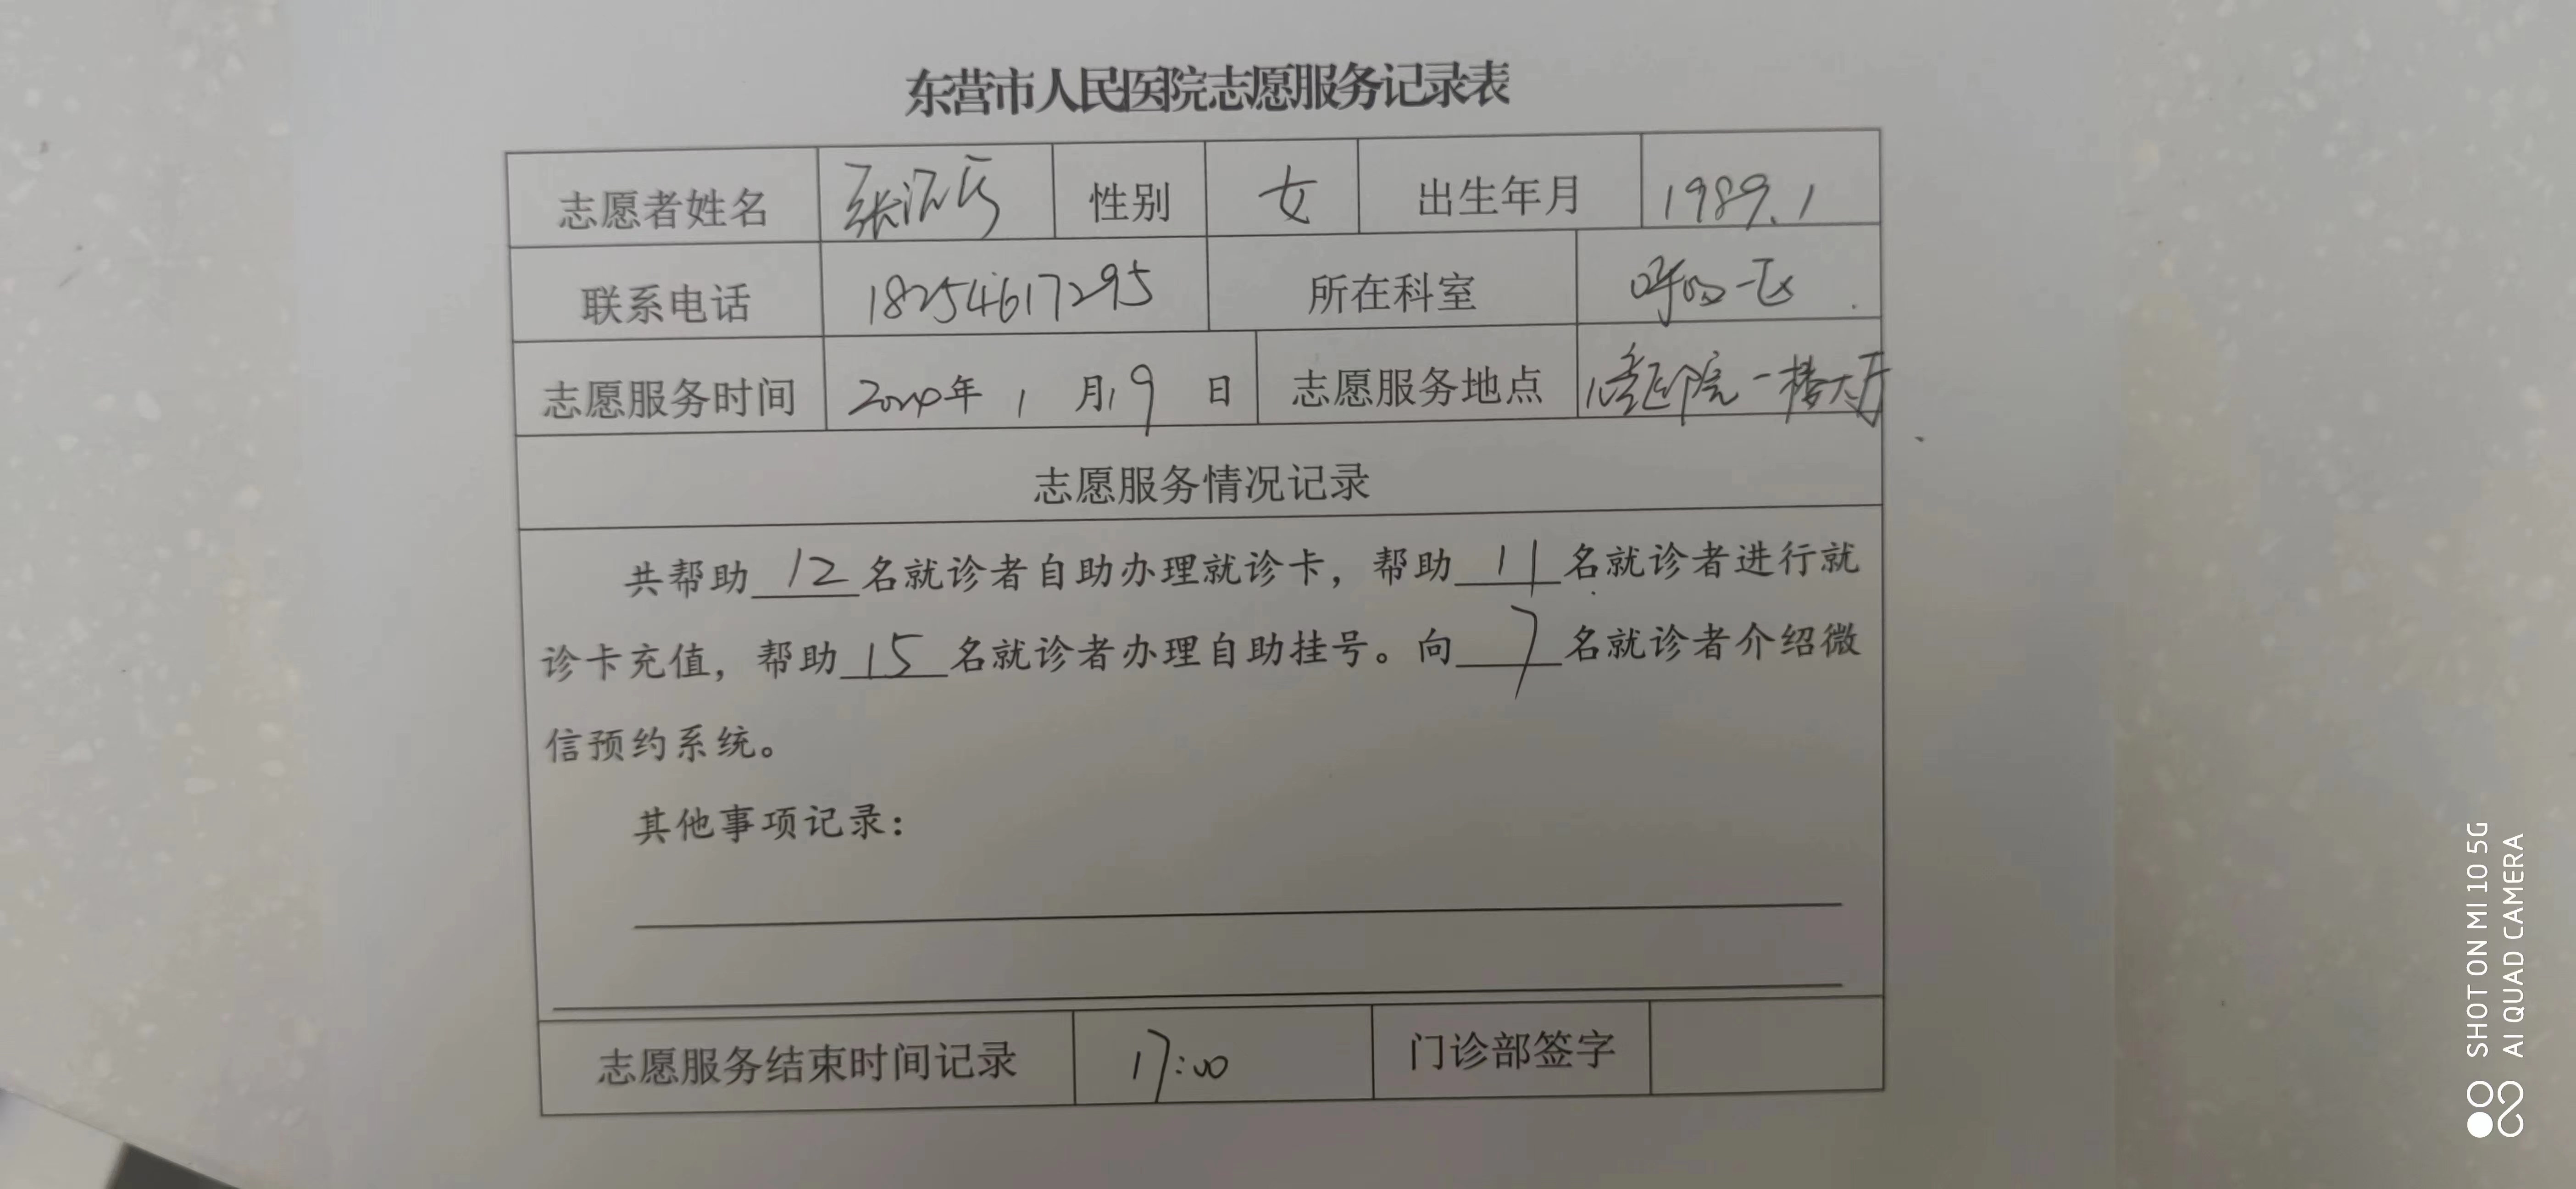 东营市人民医院志愿服务记录表
志愿者姓名 张 性别 女 出生年月 1989.1
联系电话 18254617295 所在科室 呼吸一区
志愿服务时间 年 1 月19 日 志愿服务地点 医院一楼大厅
志愿服务情况记录
共帮助 12 名就诊者自助办理就诊卡，帮助 11 名就诊者进行就
诊卡充值，帮助 15 名就诊者办理自助挂号。向 7 名就诊者介绍微
信预约系统。
其他事项记录：
志愿服务结束时间记录 17:00 门诊部签字
SHOT ON MI 10 5G
AI QUAD CAMERA